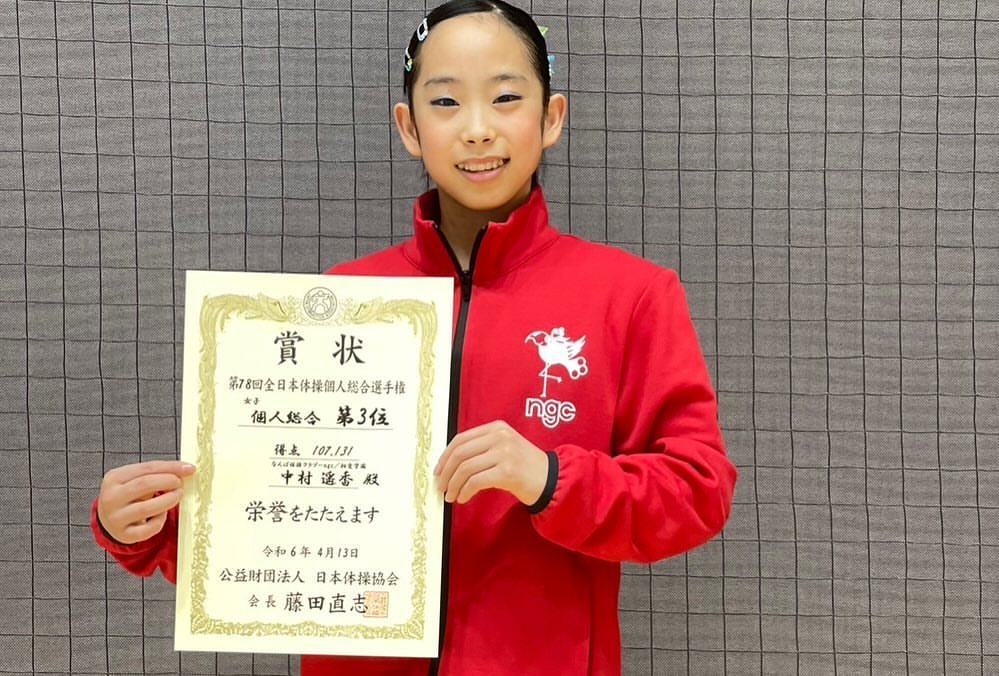 賞状
第78回全日本体操個人総合選手権
女子
個人総合 第3位
得点 107,131
なんば体操クラブーngc/相愛学園
中村 遥香 殿
栄誉をたたえます
令和6年 4月13日
公益財団法人 日本体操協会
会長 藤田直志
ngc